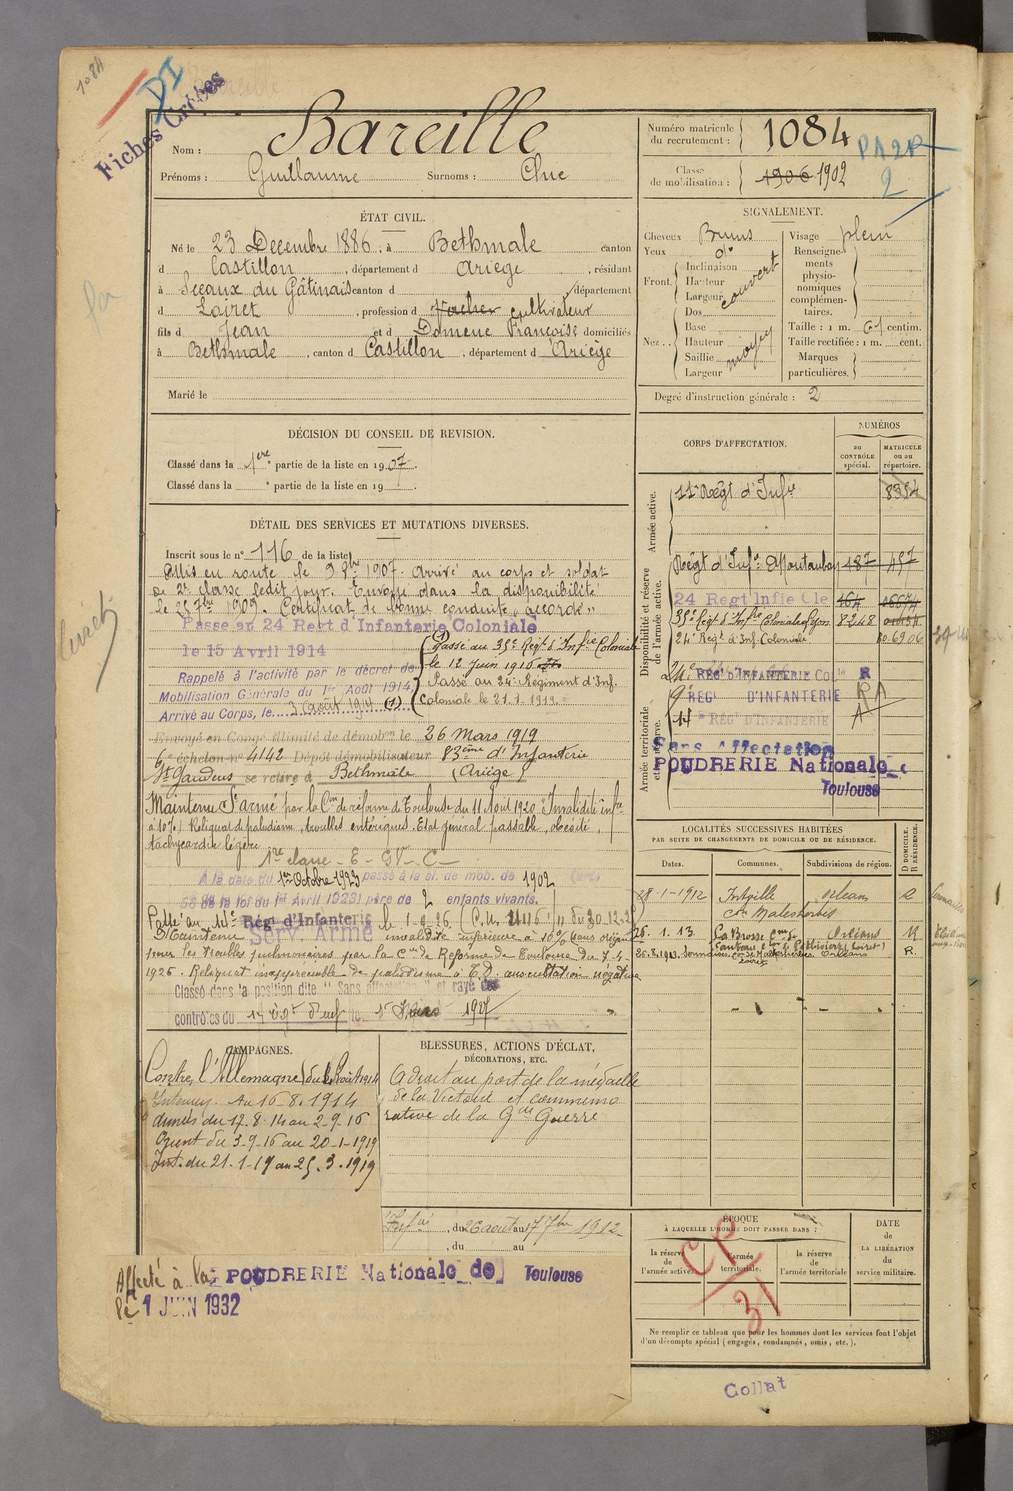 1084
DI
Fiches Créées
Nom : Bareille
Prénoms : Guillaume Surnoms : Cluc
Numéro matricule du recrutement : 1084
PA2R
Classe de mobilisation : 1906 1902
2
ÉTAT CIVIL.
Né le 23 Decembre 1886, à Bethmale canton
d Castillon, département d Ariège, résidant
à Sceaux du Gâtinais canton d département
d Loiret, profession d Vacher cultivateur
fils d Jean et d Domenc Françoise domiciliés
à Bethmale, canton d Castillon, département d Ariège
Marié le
SIGNALEMENT.
Cheveux Bruns
Yeux do
Front. Inclinaison
Hauteur
Largeur
couvert
Nez .. Dos
Base
Hauteur
Saillie
Largeur
moyen
Visage plein
Renseignements physionomiques complémentaires.
Taille : 1 m. 61 centim.
Taille rectifiée : 1 m. cent.
Marques particulières.
Degré d'instruction générale : 2
DÉCISION DU CONSEIL DE REVISION.
Classé dans la 1ère partie de la liste en 1907.
Classé dans la e partie de la liste en 19
CORPS D'AFFECTATION.
NUMÉROS
au CONTRÔLE spécial.
MATRICULE ou au répertoire.
Armée active.
11e Régt d'Infie 8354
Disponibilité et réserve de l'armée active.
Régt d'Infie Montauban 487 457
24 Regt Infie Cle 464
35e Régt d'Infie Coloniale Lyon 8248
24e Régt d'Inf. Coloniale
Armée territoriale et sa réserve.
24e RÉGt D'INFANTERIE COLle R
9e REGt D'INFANTERIE RA
14e RÉGt D'INFANTERIE A
Sans Affectation
POUDRERIE Nationale
Toulouse
DÉTAIL DES SERVICES ET MUTATIONS DIVERSES.
Inscrit sous le n° 116 de la liste
Mis en route le 9 8bre 1907. Arrivé au corps et soldat
de 2e classe ledit jour. Envoyé dans la disponibilité
le 25 7bre 1909. Certificat de bonne conduite "accordé"
Passe au 24 Regt d'Infanterie Coloniale
le 15 Avril 1914
Passé au 35e Régt d'Infie Coloniale
le 12 Juin 1916
Rappelé à l'activité par le décret de
Mobilisation Générale du 1er Août 1914.
Passé au 24e Régiment d'Inf.
Coloniale le 21.1.1919.
Arrivé au Corps, le 3 août 1914 (1)
Envoyé en Congé illimité de démobon le 26 Mars 1919
6e échelon n° 4142 Dépôt démobilisateur 83ème d'Infanterie
St Gaudens se retire à Bethmale (Ariège)
Maintenu S. armé par la Con de réforme de Toulouse du 11 Août 1920 : Invalidité infre
à 10% ; Reliquat de paludisme, troubles entériques. Etat général passable, obésité,
tachycardie légère
1re classe - E - GV - C -
A la date du 1er Octobre 1923 passé à la cl. de mob. de 1902 (art.
58 de la loi du 1er Avril 1923) père de 2 enfants vivants.
Passé au 14e Régt d'Infanterie le 1-9-26
Maintenu Serv. Armé invalidité inférieure à 10% sans origine
pour les troubles pulmonaires par la Con de Réforme de Toulouse du
1926. Reliquat inappreciable de paludisme à E.D. auscultation négative
Classé dans la position dite "Sans affectation" et rayé des
contrôles du 14 Régt d'Inf le 1er Mars 1927
LOCALITÉS SUCCESSIVES HABITÉES
PAR SUITE DE CHANGEMENTS DE DOMICILE OU DE RÉSIDENCE.
Dates. Communes. Subdivisions de région. D DOMICILE. R RÉSIDENCE.
28-1-1912 Intville Orléans R
Con Malesherbes
26.1.13. La Brosse Orléans R
Malesherbes Orléans R.
CAMPAGNES.
Contre l'Allemagne du 3 août 1914
Intérieur. Au 16.8.1914
Armées du 17.8.14 au 2-9-16
Orient du 3-9-16 au 20-1-1919
Int. du 21-1-19 au 25.3.1919
BLESSURES, ACTIONS D'ÉCLAT,
DÉCORATIONS, ETC.
A droit au port de la médaille
de la Victoire et commémo
rative de la Gde Guerre
, du 26 août au 17 7bre 1912
, du au
ÉPOQUE
À LAQUELLE L'HOMME DOIT PASSER DANS :
la réserve de l'armée active.
l'armée territoriale.
la réserve de l'armée territoriale
DATE DE LA LIBÉRATION du service militaire.
CP
31
Ne remplir ce tableau que pour les hommes dont les services font l'objet
d'un décompte spécial (engagés, condamnés, omis, etc.).
Affecté à la POUDRERIE Nationale de Toulouse
le 1 JUIN 1932
Collat